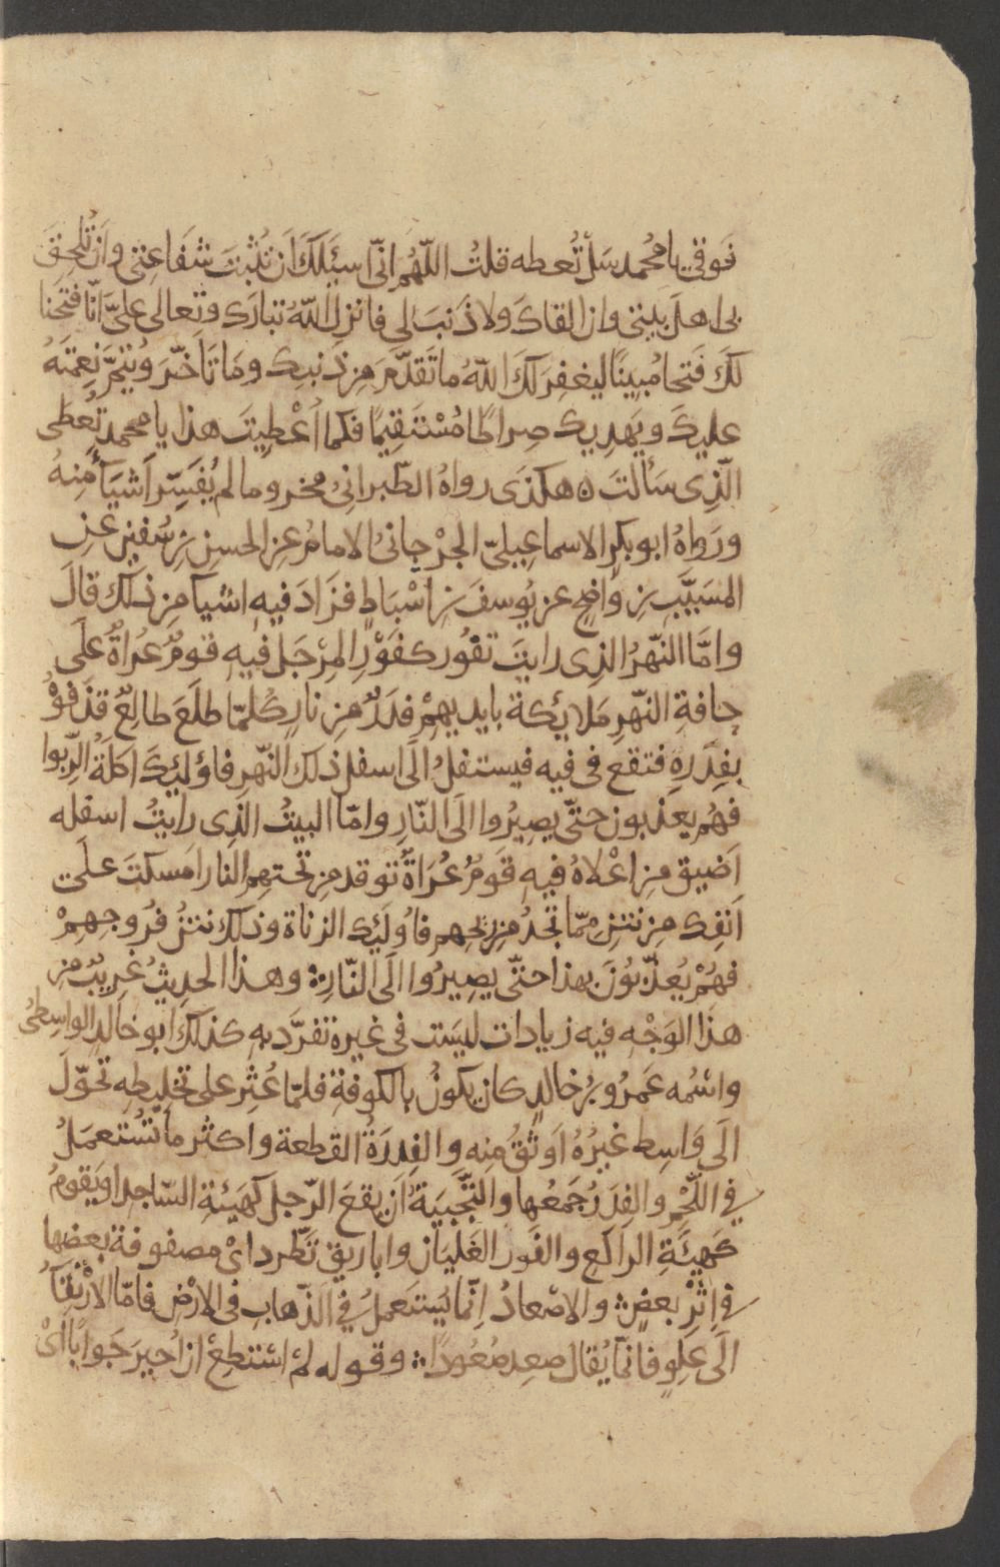 فَوقي يا محُمد سَل تُعطه قلتُ اللّهُم انّى اسئَلكَ ان تُثبتَ شَفَاعتى وان تُلحِقَ
بى اهل بيتى وان القاكَ ولا ذَنبَ لى فانزل اللّهُ تبارك وتعالى علىّ انّا فتحنا
لَكَ فَتحا مُبينًا ليغفِر لَكَ اللّهُ ما تقدّمَ مِن ذنبِك ومَا تاَخّرَ وَيُتِمَّ نِعمَتَهُ
عليكَ ويَهديك صِراطًا مُسْتَقيمًا فكما اُعْطِيتَ هذا يا محمد تُعطَى
الّذِى سَألتَ ه هكذَى رواهُ الطّبرانىُ مخر وما لم يُفَسِّر اَشيَأً مِنهُ
ورَواهُ ابو بكرِ الاسماعِيلىّ الجرْجانىُ الامامُ عن الحسنِ بن سُفين عن
المسَيَّبِ بن واضحٍ عن يُوسفَ بن اسْبَاطٍ فزَادَ فيهِ اشيا مِن ذلك قالَ
وامَّا النّهرُ الذِى رايتَ تفُور كفَوْرِ المِرْجَل فيهِ قومٌ عُراةٌ علَى
حافةِ النّهرِ مَلايكة بايديهِمْ فِدَرٌ مِن نارٍ كُلّما طلَعَ طالعٌ قذَفوْهُ
بفِدَرةٍ فتقع فى فيه فيستفلُ الَى اسفل ذلك النّهر فاوُليكَ اكلَةُ الرِّبوا
فهُم يعذبون حتّى يصِيرُوا الَى النّارِ وامّا البيتُ الذِى رايتُ اسفله
اَضيق مِن اعْلاهُ فيهِ قَومٌ عُرَاةٌ توقد مِن تحتهِم النار امسكتَ علَى
اَنفِك مِن نتنِ ممّا تجدُ مِن ريحهِم فاُوليَك الزناة وذلك نتنُ فُروجِهِمْ
فهُمْ يُعذّبُونَ بهذا حتّى يصِيرُوا الَى النّارِ ؞ وهذا الحديثُ غريبٌ مِن
هذا الوَجْهِ فيه زيادات ليسَت فى غيرهِ تفرّد بهِ كذلك ابو خالد الواسطىُّ
واسْمُه عَمرُو بنُ خالدٍ كان يكونُ بالكوفة فلمّا عُثِر على تخليطه تحوّلَ
الَى وَاسِط غيرُهُ اَوثَقُ مِنه والفِدرَةُ القطعة واكثر ما تُستعمَلُ
فى اللّحْمِ والفِدَرُ جَمعُها والتّجْبيَةُ اَن يقعَ الرّجل كهَيئةِ السّاجِد او يَقومُ
كَهيئَةِ الراكعِ والفَورُ الغَليَان واباريق تَطّرد اىْ مصفوفة بعضها
فى اِثرْ بعضٍ ؞ والاصْعادُ اِنّما يُستَعملُ فى الذّهابِ فى الارْضِ فامّا الارْتِقَآ
الَى عِلوٍ فانّما يُقال صعِد صُعُودًا ؞ وقوله لم اسْتطِعْ ان اُحيرَ جَوابًا اىْ